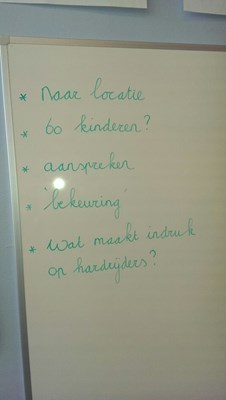 * Naar locatie
* 60 kinderen?
* aanspreken
* 'bekeuring'
* Wat maakt indruk
op hardrijders?